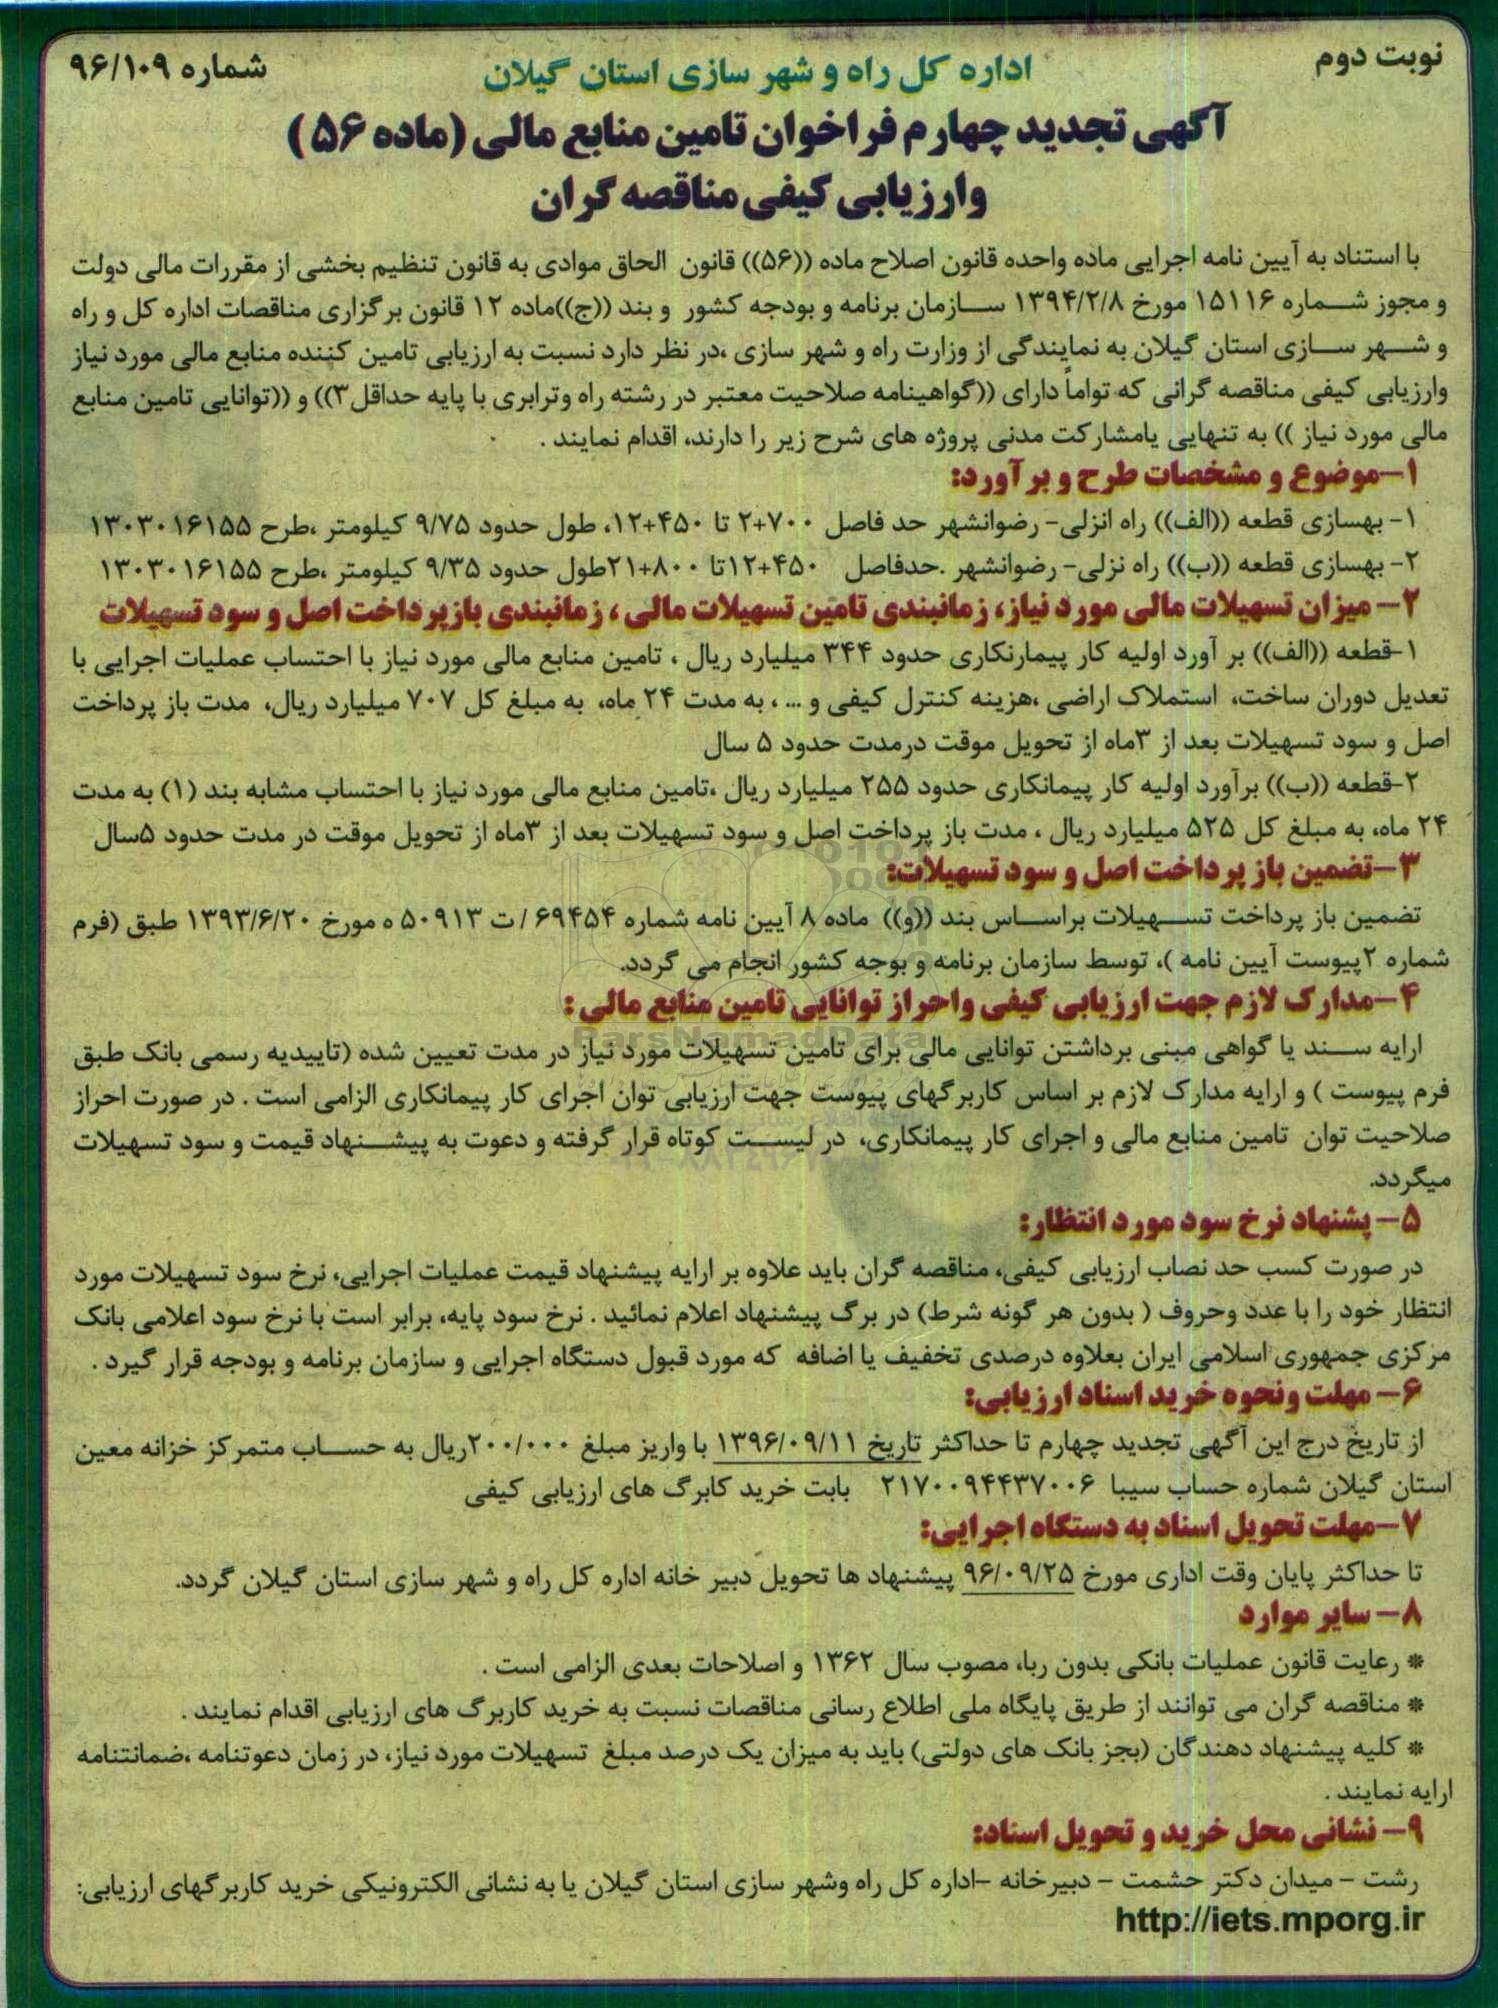 نوبت دوم
اداره کل راه و شهر سازی استان گیلان
شماره ۹۶/۱۰۹
آگهی تجدید چهارم فراخوان تامین منابع مالی (ماده ۵۶)
وارزیابی کیفی مناقصه گران
با استناد به آیین نامه اجرایی ماده واحده قانون اصلاح ماده ((۵۶)) قانون الحاق موادی به قانون تنظیم بخشی از مقررات مالی دولت
و مجوز شماره ۱۵۱۱۶ مورخ ۱۳۹۴/۲/۸ سازمان برنامه و بودجه کشور و بند ((ج))ماده ۱۲ قانون برگزاری مناقصات اداره کل و راه
و شهر سازی استان گیلان به نمایندگی از وزارت راه و شهر سازی ،در نظر دارد نسبت به ارزیابی تامین کننده منابع مالی مورد نیاز
وارزیابی کیفی مناقصه گرانی که تواماً دارای ((گواهینامه صلاحیت معتبر در رشته راه وترابری با پایه حداقل۳)) و ((توانایی تامین منابع
مالی مورد نیاز )) به تنهایی یامشارکت مدنی پروژه های شرح زیر را دارند، اقدام نمایند .
۱-موضوع و مشخصات طرح و برآورد:
۱- بهسازی قطعه ((الف)) راه انزلی- رضوانشهر حد فاصل ۷۰۰+۲ تا ۴۵۰+۱۲، طول حدود ۹/۷۵ کیلومتر ،طرح ۱۳۰۳۰۱۶۱۵۵
۲- بهسازی قطعه ((ب)) راه نزلی- رضوانشهر .حدفاصل ۴۵۰+۱۲تا ۸۰۰+۲۱طول حدود ۹/۳۵ کیلومتر ،طرح ۱۳۰۳۰۱۶۱۵۵
۲- میزان تسهیلات مالی مورد نیاز، زمانبندی تامین تسهیلات مالی ، زمانبندی بازپرداخت اصل و سود تسهیلات
۱-قطعه ((الف)) بر آورد اولیه کار پیمارنکاری حدود ۳۴۴ میلیارد ریال ، تامین منابع مالی مورد نیاز با احتساب عملیات اجرایی با
تعدیل دوران ساخت، استملاک اراضی ،هزینه کنترل کیفی و ... ، به مدت ۲۴ ماه، به مبلغ کل ۷۰۷ میلیارد ریال، مدت باز پرداخت
اصل و سود تسهیلات بعد از ۳ماه از تحویل موقت درمدت حدود ۵ سال
۲-قطعه ((ب)) برآورد اولیه کار پیمانکاری حدود ۲۵۵ میلیارد ریال ،تامین منابع مالی مورد نیاز با احتساب مشابه بند (۱) به مدت
۲۴ ماه، به مبلغ کل ۵۲۵ میلیارد ریال ، مدت باز پرداخت اصل و سود تسهیلات بعد از ۳ماه از تحویل موقت در مدت حدود ۵سال
۳-تضمین باز پرداخت اصل و سود تسهیلات:
تضمین باز پرداخت تسهیلات براساس بند ((و)) ماده ۸ آیین نامه شماره ۶۹۴۵۴ / ت ۵۰۹۱۳ ه مورخ ۱۳۹۳/۶/۲۰ طبق (فرم
شماره ۲پیوست آیین نامه )، توسط سازمان برنامه و بوجه کشور انجام می گردد.
۴-مدارک لازم جهت ارزیابی کیفی واحراز توانایی تامین منابع مالی :
ParsNamadData
ارایه سند یا گواهی مبنی برداشتن توانایی مالی برای تامین تسهیلات مورد نیاز در مدت تعیین شده (تاییدیه رسمی بانک طبق
فرم پیوست ) و ارایه مدارک لازم بر اساس کاربرگهای پیوست جهت ارزیابی توان اجرای کار پیمانکاری الزامی است . در صورت احراز
صلاحیت توان تامین منابع مالی و اجرای کار پیمانکاری، در لیست کوتاه قرار گرفته و دعوت به پیشنهاد قیمت و سود تسهیلات
میگردد.
۵- پشنهاد نرخ سود مورد انتظار:
در صورت کسب حد نصاب ارزیابی کیفی، مناقصه گران باید علاوه بر ارایه پیشنهاد قیمت عملیات اجرایی، نرخ سود تسهیلات مورد
انتظار خود را با عدد وحروف ( بدون هر گونه شرط) در برگ پیشنهاد اعلام نمائید . نرخ سود پایه، برابر است با نرخ سود اعلامی بانک
مرکزی جمهوری اسلامی ایران بعلاوه درصدی تخفیف یا اضافه که مورد قبول دستگاه اجرایی و سازمان برنامه و بودجه قرار گیرد .
۶- مهلت ونحوه خرید اسناد ارزیابی:
از تاریخ درج این آگهی تجدید چهارم تا حداکثر تاریخ ۱۳۹۶/۰۹/۱۱ با واریز مبلغ ۲۰۰/۰۰۰ریال به حساب متمرکز خزانه معین
استان گیلان شماره حساب سیبا ۲۱۷۰۰۹۴۴۳۷۰۰۶ بابت خرید کابرگ های ارزیابی کیفی
۷-مهلت تحویل اسناد به دستگاه اجرایی:
تا حداکثر پایان وقت اداری مورخ ۹۶/۰۹/۲۵ پیشنهاد ها تحویل دبیر خانه اداره کل راه و شهر سازی استان گیلان گردد.
۸- سایر موارد
* رعایت قانون عملیات بانکی بدون ربا، مصوب سال ۱۳۶۲ و اصلاحات بعدی الزامی است .
* مناقصه گران می توانند از طریق پایگاه ملی اطلاع رسانی مناقصات نسبت به خرید کاربرگ های ارزیابی اقدام نمایند .
* کلیه پیشنهاد دهندگان (بجز بانک های دولتی) باید به میزان یک درصد مبلغ تسهیلات مورد نیاز، در زمان دعوتنامه ،ضمانتنامه
ارایه نمایند .
۹- نشانی محل خرید و تحویل اسناد:
رشت - میدان دکتر حشمت - دبیرخانه -اداره کل راه وشهر سازی استان گیلان یا به نشانی الکترونیکی خرید کاربرگهای ارزیابی:
http://iets.mporg.ir